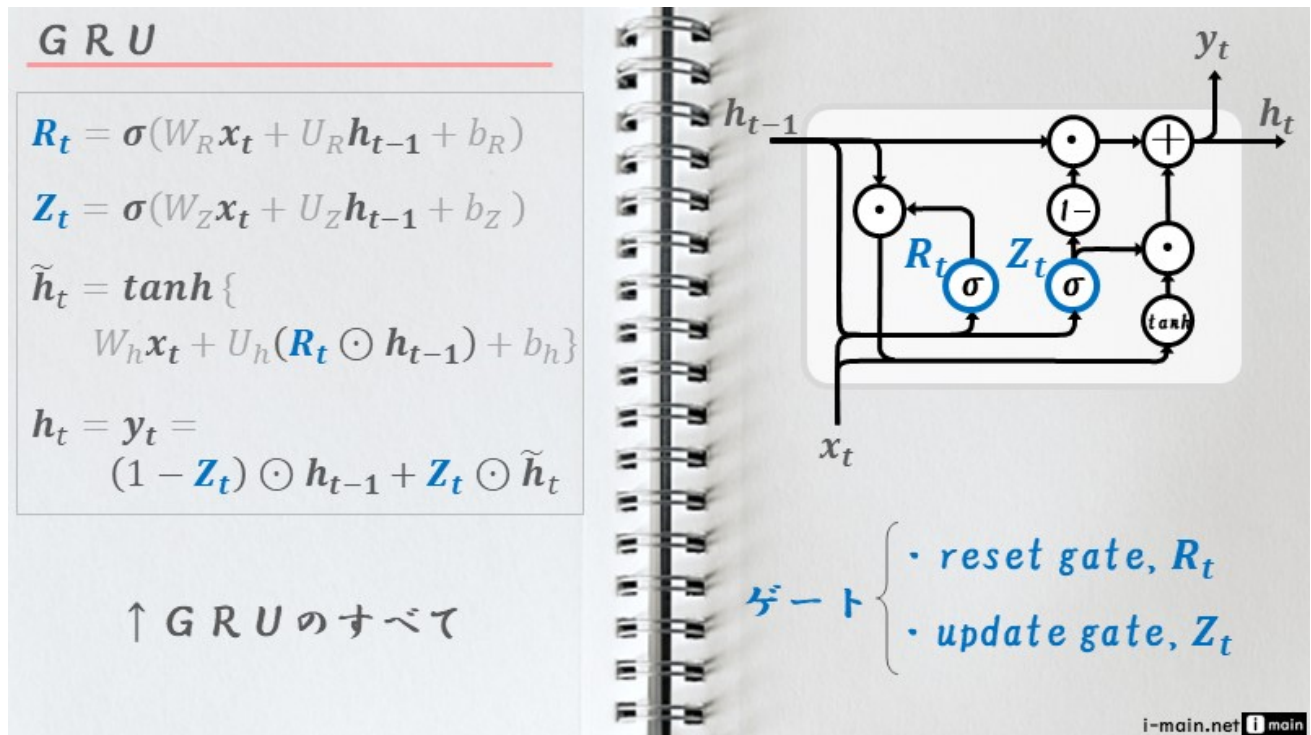 GRU
R_t = σ(W_R x_t + U_R h_{t−1} + b_R)
Z_t = σ(W_Z x_t + U_Z h_{t−1} + b_Z )
h̃_t = tanh {
W_h x_t + U_h(R_t ⊙ h_{t−1}) + b_h}
h_t = y_t =
(1 − Z_t) ⊙ h_{t−1} + Z_t ⊙ h̃_t
↑GRUのすべて
y_t
h_{t−1}
h_t
+
1−
R_t
Z_t
σ
σ
tanh
x_t
ゲート
・reset gate, R_t
・update gate, Z_t
i-main.net i main